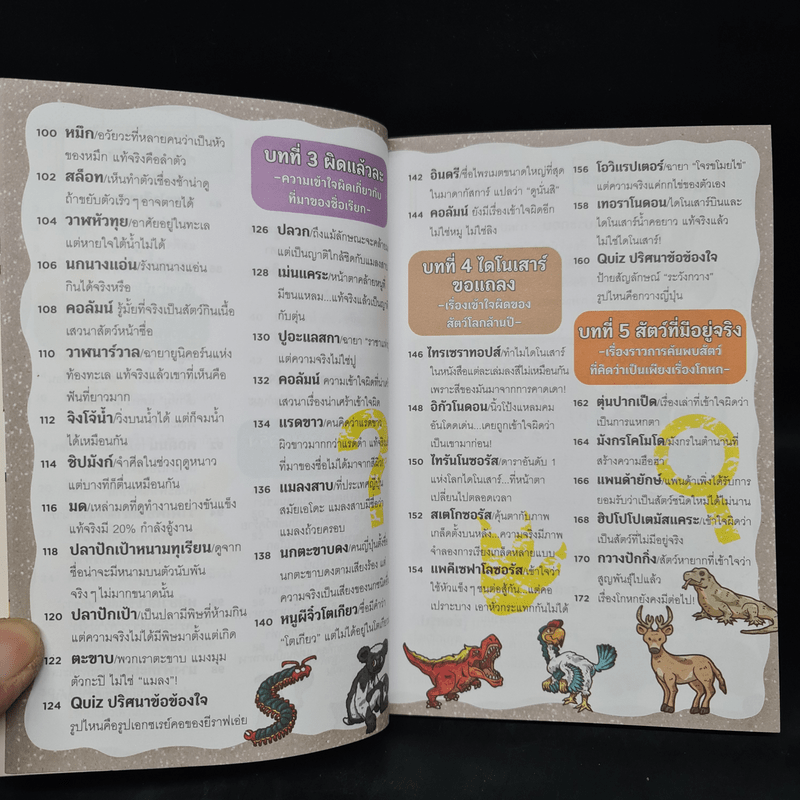 100 หมึก/อวัยวะที่หลายคนว่าเป็นหัว
ของหมึก แท้จริงคือลำตัว
102 สล็อท/เห็นทำตัวเชื่องช้าน่าดู
ถ้าขยับตัวเร็วๆ อาจตายได้
104 วาฬหัวทุย/อาศัยอยู่ในทะเล
แต่หายใจใต้น้ำไม่ได้
106 นกนางแอ่น/รังนกนางแอ่น
กินได้จริงหรือ
108 คอลัมน์ รู้มั้ยที่จริงเป็นสัตว์กินเนื้อ
เสวนาสัตว์หน้าซื่อ
110 วาฬนาร์วาล/ฉายายูนิคอร์นแห่ง
ท้องทะเล แท้จริงแล้วเขาที่เห็นคือ
ฟันที่ยาวมาก
112 จิงโจ้น้ำ/วิ่งบนน้ำได้ แต่ก็จมน้ำ
ได้เหมือนกัน
114 ชิปมังก์/จำศีลในช่วงฤดูหนาว
แต่บางทีก็ตื่นเหมือนกัน
116 มด/เหล่ามดที่ดูทำงานอย่างขันแข็ง
แท้จริงมี 20% กำลังอู้งาน
118 ปลาปักเป้าหนามทุเรียน/ดูจาก
ชื่อน่าจะมีหนามบนตัวนับพัน
จริงๆ ไม่มากขนาดนั้น
120 ปลาปักเป้า/เป็นปลามีพิษที่ห้ามกิน
แต่ความจริงไม่ได้มีพิษมาตั้งแต่เกิด
122 ตะขาบ/พวกเราตะขาบ แมงมุม
ตัวกะปิ ไม่ใช่ "แมลง"!
124 Quiz ปริศนาข้อข้องใจ
รูปไหนคือรูปเอกซเรย์คอของยีราฟเอ่ย
บทที่ 3 ผิดแล้วละ
-ความเข้าใจผิดเกี่ยวกับ
ที่มาของชื่อเรียก-
126 ปลวก/ถึงแม้ลักษณะจะคล้าย
แต่เป็นญาติใกล้ชิดกับแมลงสาบ
128 เม่นแคระ/หน้าตาคล้ายหนูที่
มีขนแหลม...แท้จริงแล้วเป็นญาติ
กับตุ่น
130 ปูอะแลสกา/ฉายา "ราชา
แต่ความจริงไม่ใช่ปู
132 คอลัมน์ ความเข้าใจผิดที่น่า
เสวนาเรื่องน่าเศร้าเข้าใจผิด
134 แรดขาว/คนคิดว่าแรดขาว
ผิวขาวมากกว่าแรดดำ แท้จริง
ที่มาของชื่อไม่ได้มาจากสีผิว
136 แมลงสาบ/ที่ประเทศญี่ปุ่น
สมัยเอโดะ แมลงสาบมีชื่อว่า
แมลงถ้วยครอบ
138 นกตะขาบดง/คนญี่ปุ่นตั้งชื่อ
นกตะขาบดงตามเสียงร้อง แต่
ความจริงเป็นเสียงของนกชนิดอื่น
140 หนูผีจิ๋วโตเกียว/ชื่อมีคำว่า
"โตเกียว" แต่ไม่ได้อยู่ในโตเกียว
142 อินดรี/ชื่อไพรเมตขนาดใหญ่ที่สุด
ในมาดากัสการ์ แปลว่า "ดูนั่นสิ"
144 คอลัมน์ ยังมีเรื่องเข้าใจผิดอีก
ไม่ใช่หมู ไม่ใช่ลิง
บทที่ 4 ไดโนเสาร์
ขอแถลง
-เรื่องเข้าใจผิดของ
สัตว์โลกล้านปี-
146 ไทรเซราทอปส์/ทำไมไดโนเสาร์
ในหนังสือแต่ละเล่มลงสีไม่เหมือนกัน
เพราะสีของมันมาจากการคาดเดา!
148 อิกัวโนดอน/นิ้วโป้งแหลมคม
อันโดดเด่น...เคยถูกเข้าใจผิดว่า
เป็นเขามาก่อน!
150 ไทรันโนซอรัส/ดาราอันดับ 1
แห่งโลกไดโนเสาร์...ที่หน้าตา
เปลี่ยนไปตลอดเวลา
152 สเตโกซอรัส/คุ้นตากับภาพ
เกล็ดตั้งบนหลัง...ความจริงมีภาพ
จำลองการเรียงเกล็ดหลายแบบ
154 แพคิเซฟาโลซอรัส/เข้าใจว่า
ใช้หัวแข็งๆ ชนต่อสู้กัน...แต่คอ
เปราะบาง เอาหัวกระแทกกันไม่ได้
156 โอวิแรปเตอร์/ฉายา "โจรขโมยไข่"
แต่ความจริงแค่กกไข่ของตัวเอง
158 เทอราโนดอน/ไดโนเสาร์บินและ
ไดโนเสาร์น้ำคอยาว แท้จริงแล้ว
ไม่ใช่ไดโนเสาร์!
160 Quiz ปริศนาข้อข้องใจ
ป้ายสัญลักษณ์ "ระวังกวาง"
รูปไหนคือกวางญี่ปุ่น
บทที่ 5 สัตว์ที่มีอยู่จริง
-เรื่องราวการค้นพบสัตว์
ที่คิดว่าเป็นเพียงเรื่องโกหก-
162 ตุ่นปากเป็ด/เรื่องเล่าที่เข้าใจผิดว่า
เป็นการแหกตา
164 มังกรโคโมโด/มังกรในตำนานที่
สร้างความฮือฮา
166 แพนด้ายักษ์/แพนด้าเพิ่งได้รับการ
ยอมรับว่าเป็นสัตว์ชนิดใหม่ได้ไม่นาน
168 ฮิปโปโปเตมัสแคระ/เข้าใจผิดว่า
เป็นสัตว์ที่ไม่มีอยู่จริง
170 กวางปักกิ่ง/สัตว์หายากที่เข้าใจว่า
สูญพันธุ์ไปแล้ว
172 เรื่องโกหกยังคงมีต่อไป!